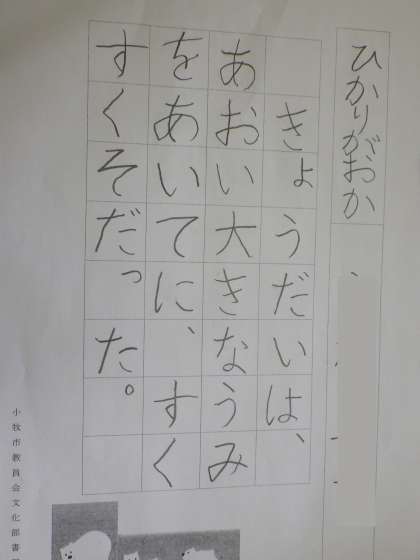 ひかりがおか
きょうだいは、
あおい大きなうみ
をあいてに、すく
すくそだった。
小牧市教員会文化部書